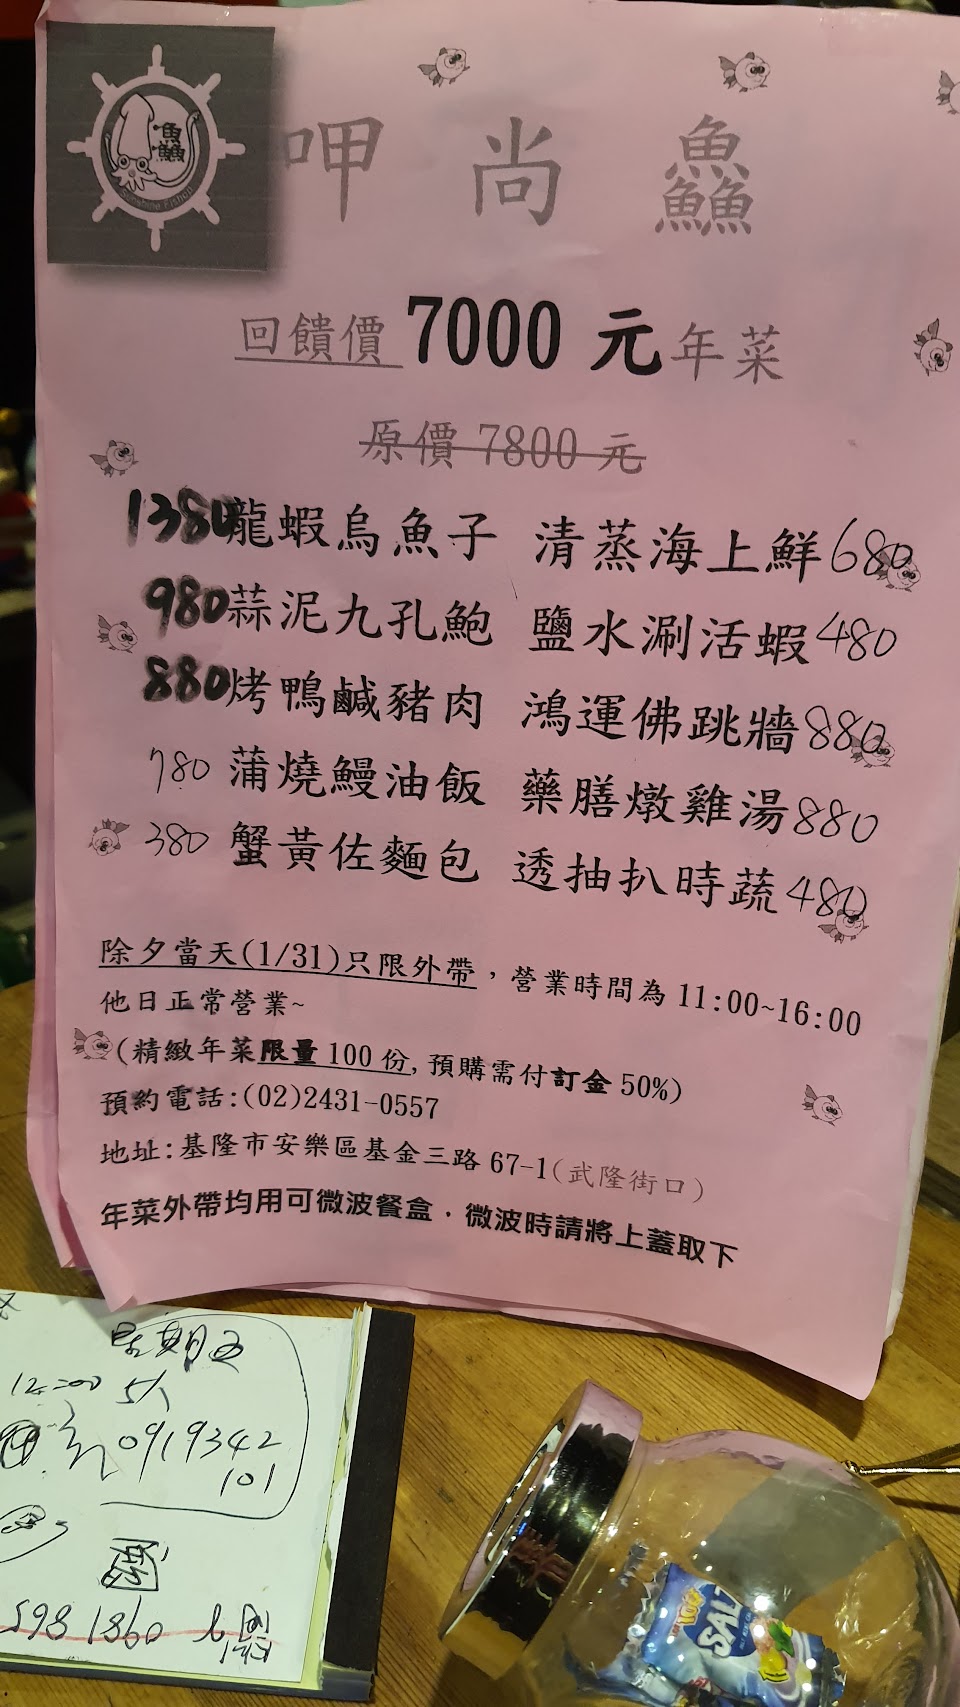 鱻
Sunshine Fishop
呷尚鱻
回饋價7000 元年菜
原價 7800 元
1380龍蝦烏魚子 清蒸海上鮮680
980蒜泥九孔鮑 鹽水涮活蝦480
880烤鴨鹹豬肉 鴻運佛跳牆880
780 蒲燒鰻油飯 藥膳燉雞湯880
380 蟹黃佐麵包 透抽扒時蔬480
除夕當天(1/31)只限外帶，營業時間為 11:00~16:00
他日正常營業~
(精緻年菜限量 100 份,預購需付訂金 50%)
預約電話:(02)2431-0557
地址:基隆市安樂區基金三路 67-1(武隆街口)
年菜外帶均用可微波餐盒．微波時請將上蓋取下
星期五
12:00 5人
0919342
101
5981860
SALT